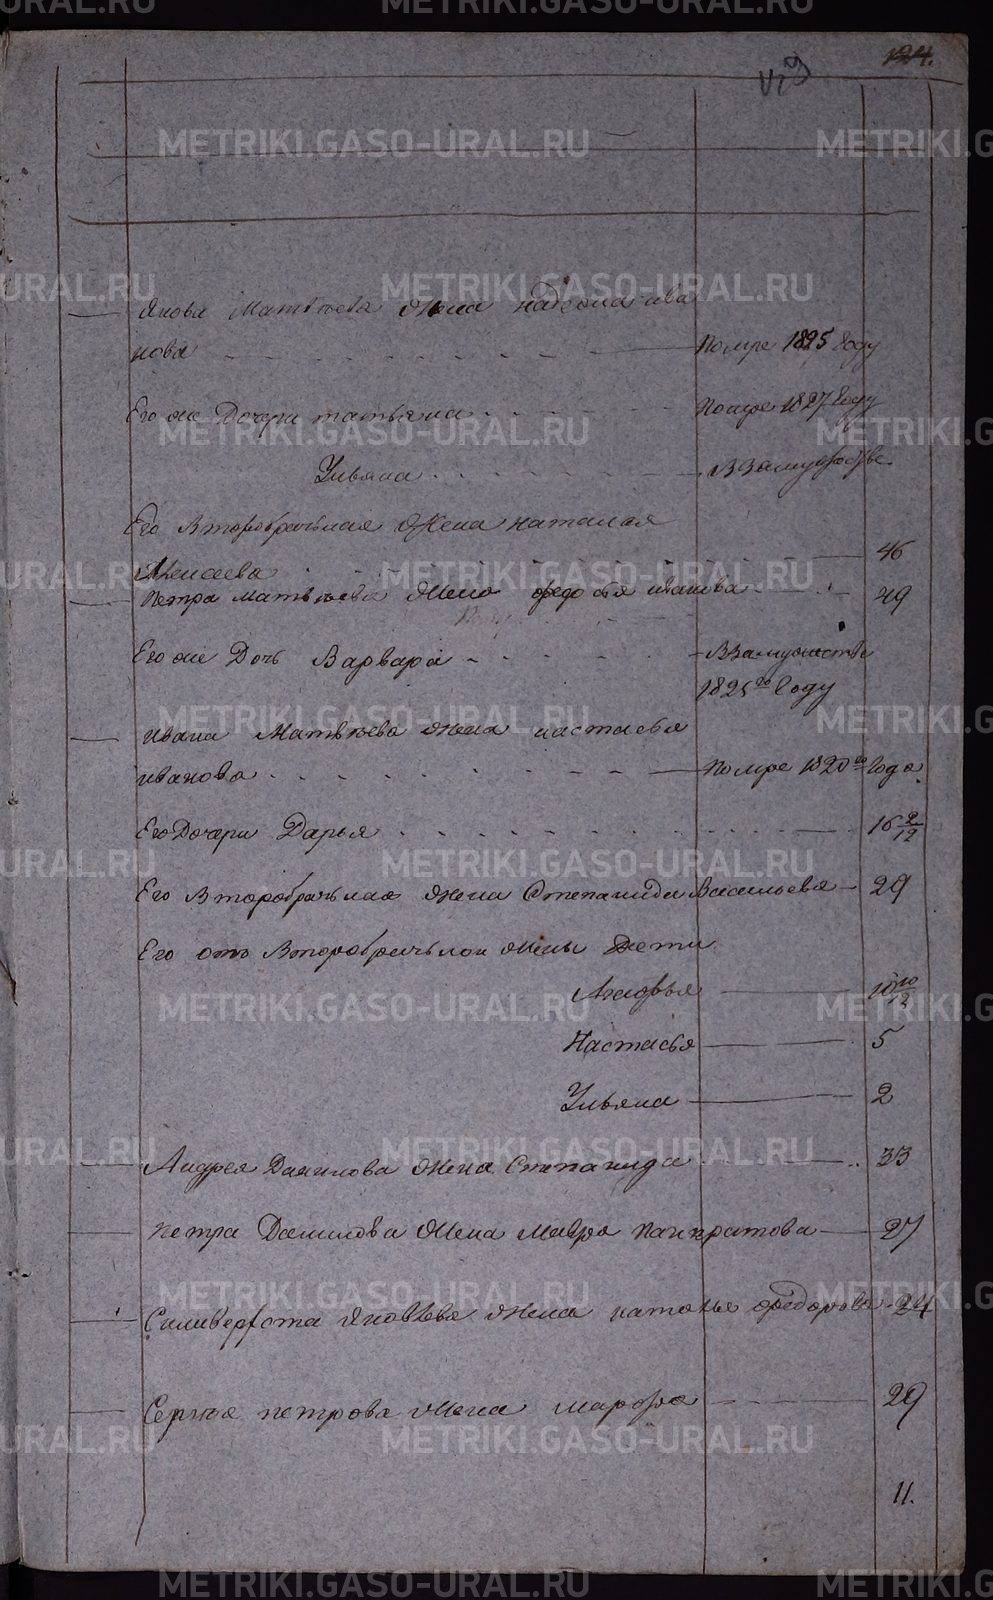 METRIKI.GASO-URAL.RU
124.
Якова Матвѣева Жена надежда ива
нова помре 1825 году
Его же Дочери татьяна помре 1827 году
Ульяна Взамужстве
Его Второбрачьная Жена наталья
Алексеева 46
Петра Матвѣева Жена федосья иванова 49
Его же Дочь Варвара Взамужстве
1825го году
Ивана Матвѣева жена настасья
иванова помре 1820го года
Его Дочери Дарья 16 9/12
Его Второбрачьная жена Степанида Васильева 29
Его отъ Второбрачьной жены дети
10/12
Настасья 5
Ульяна 2
Андрея Данилова жена Степанида 33
Петра Данилова Жена Мавра панкратова 27
Силиверста Яковлева жена наталья федорова 24
Сергея петрова жена марфа 29
11.